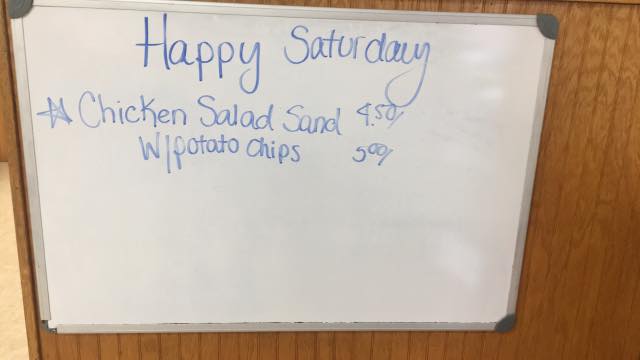 Happy Saturday
☆ Chicken Salad Sand 4.50/
W/potato chips 5.00/